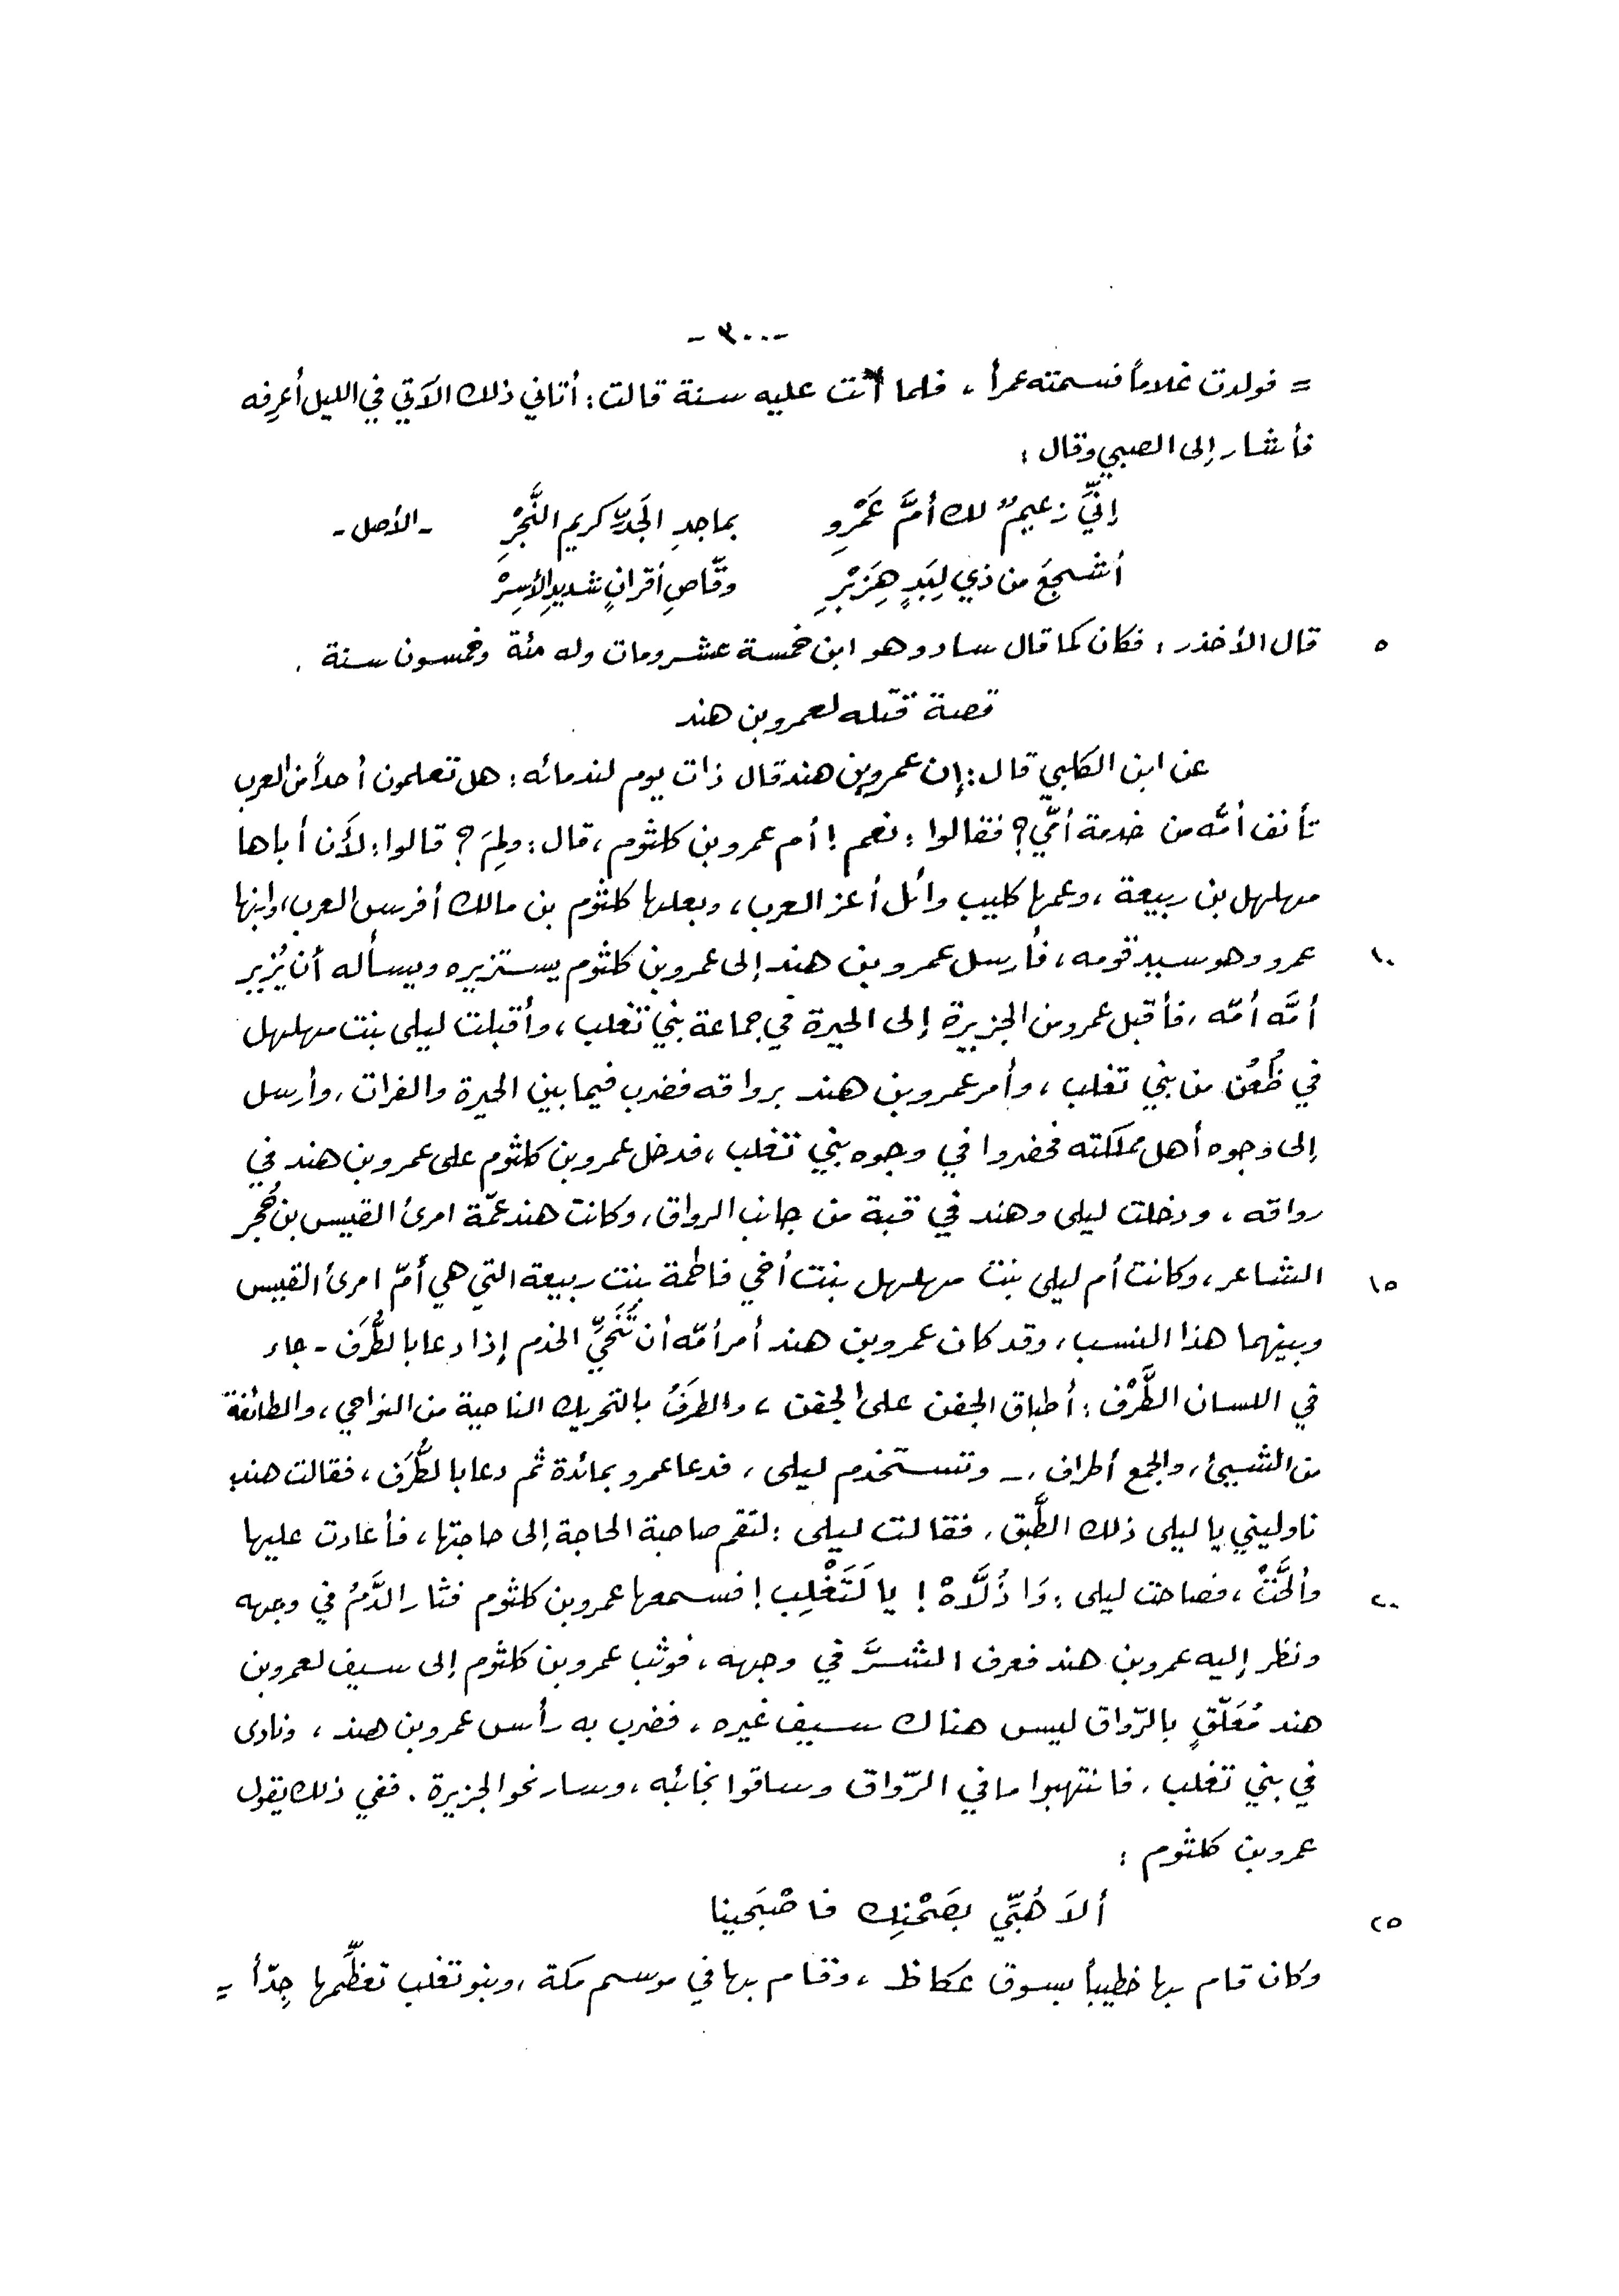 -٣٠٠-
= فولدت غلاماً فسمته عمراً ، فلما أتت عليه سنة قالت : أتاني ذلك الآتي في الليل أعرفه
فأشار إلى الصبي وقال :
إنّي زعيمٌ لك أمَّ عَمْرِو بماجدِ الجَدِّ كريم النَّجْرِ - الأصل -
أشجعَ من ذي لِبَدٍ هِزَبْرِ وقّاصِ أقرانٍ شديدِ الأسِرْ
٥ قال الأخذر : فكان كما قال ساد وهو ابن خمسة عشر ومات وله مئة وخمسون سنة .
قصة قتله لعمرو بن هند
عن ابن الكلبي قال : إن عمرو بن هند قال ذات يوم لندمائه : هل تعلمون أحداً من العرب
تأنف أمّه من خدمة أمّي ؟ فقالوا : نعم ! أم عمرو بن كلثوم ، قال : ولِمَ ؟ قالوا : لأن أباها
مهلهل بن ربيعة ، وعمها كليب وائل أعز العرب ، وبعلها كلثوم بن مالك أفرس العرب ، وابنها
١٠ عمرو وهو سيد قومه ، فأرسل عمرو بن هند إلى عمرو بن كلثوم يستزيره ويسأله أن يُزير
أمَّه أمّه ، فأقبل عمرو من الجزيرة إلى الحيرة في جماعة بني تغلب ، وأقبلت ليلى بنت مهلهل
في ظُعُن من بني تغلب ، وأمر عمرو بن هند برواقه فضرب فيما بين الحيرة والفرات ، وأرسل
إلى وجوه أهل مملكته فحضروا في وجوه بني تغلب ، فدخل عمرو بن كلثوم على عمرو بن هند في
رواقه ، ودخلت ليلى وهند في قبة من جانب الرواق ، وكانت هند عمّة امرئ القيس بن حُجر
١٥ الشاعر ، وكانت أم ليلى بنت مهلهل بنت أخي فاطمة بنت ربيعة التي هي أمّ امرئ القيس
وبينهما هذا النسب ، وقد كان عمرو بن هند أمر أمّه أن تُنَحِّي الخدم إذا دعا بالطُّرَف - جاء
في اللسان الطَّرْف : أطباق الجفن على الجفن ، والطرَفُ بالتحريك الناحية من النواحي ، والطائفة
من الشيئ ، والجمع أطراف ، - وتستخدم ليلى ، فدعا عمرو بمائدة ثم دعا بالطُّرَف ، فقالت هند :
ناوليني يا ليلى ذلك الطَّبق ، فقالت ليلى : لتقم صاحبة الحاجة إلى حاجتها ، فأعادت عليها
٢٠ وألحَّتْ ، فصاحت ليلى : وَا ذُلَّاهْ ! يا لَتَغْلِب ! فسمعها عمرو بن كلثوم فثار الدَّمُ في وجهه
ونظر إليه عمرو بن هند فعرف الشرَّ في وجهه ، فوثب عمرو بن كلثوم إلى سيف لعمرو بن
هند مُعَلّقٍ بالرّواق ليس هناك سيف غيره ، فضرب به رأس عمرو بن هند ، ونادى
في بني تغلب ، فانتهبوا ما في الرّواق وساقوا نجائبه ، وسار نحو الجزيرة . ففي ذلك يقول
عمرو بن كلثوم :
٢٥ ألاَ هُبّي بصَحْنِك فاصْبَحينا
وكان قام بها خطيباً بسوق عكاظ ، وقام بها في موسم مكة ، وبنو تغلب تعظّمها جِدّاً =